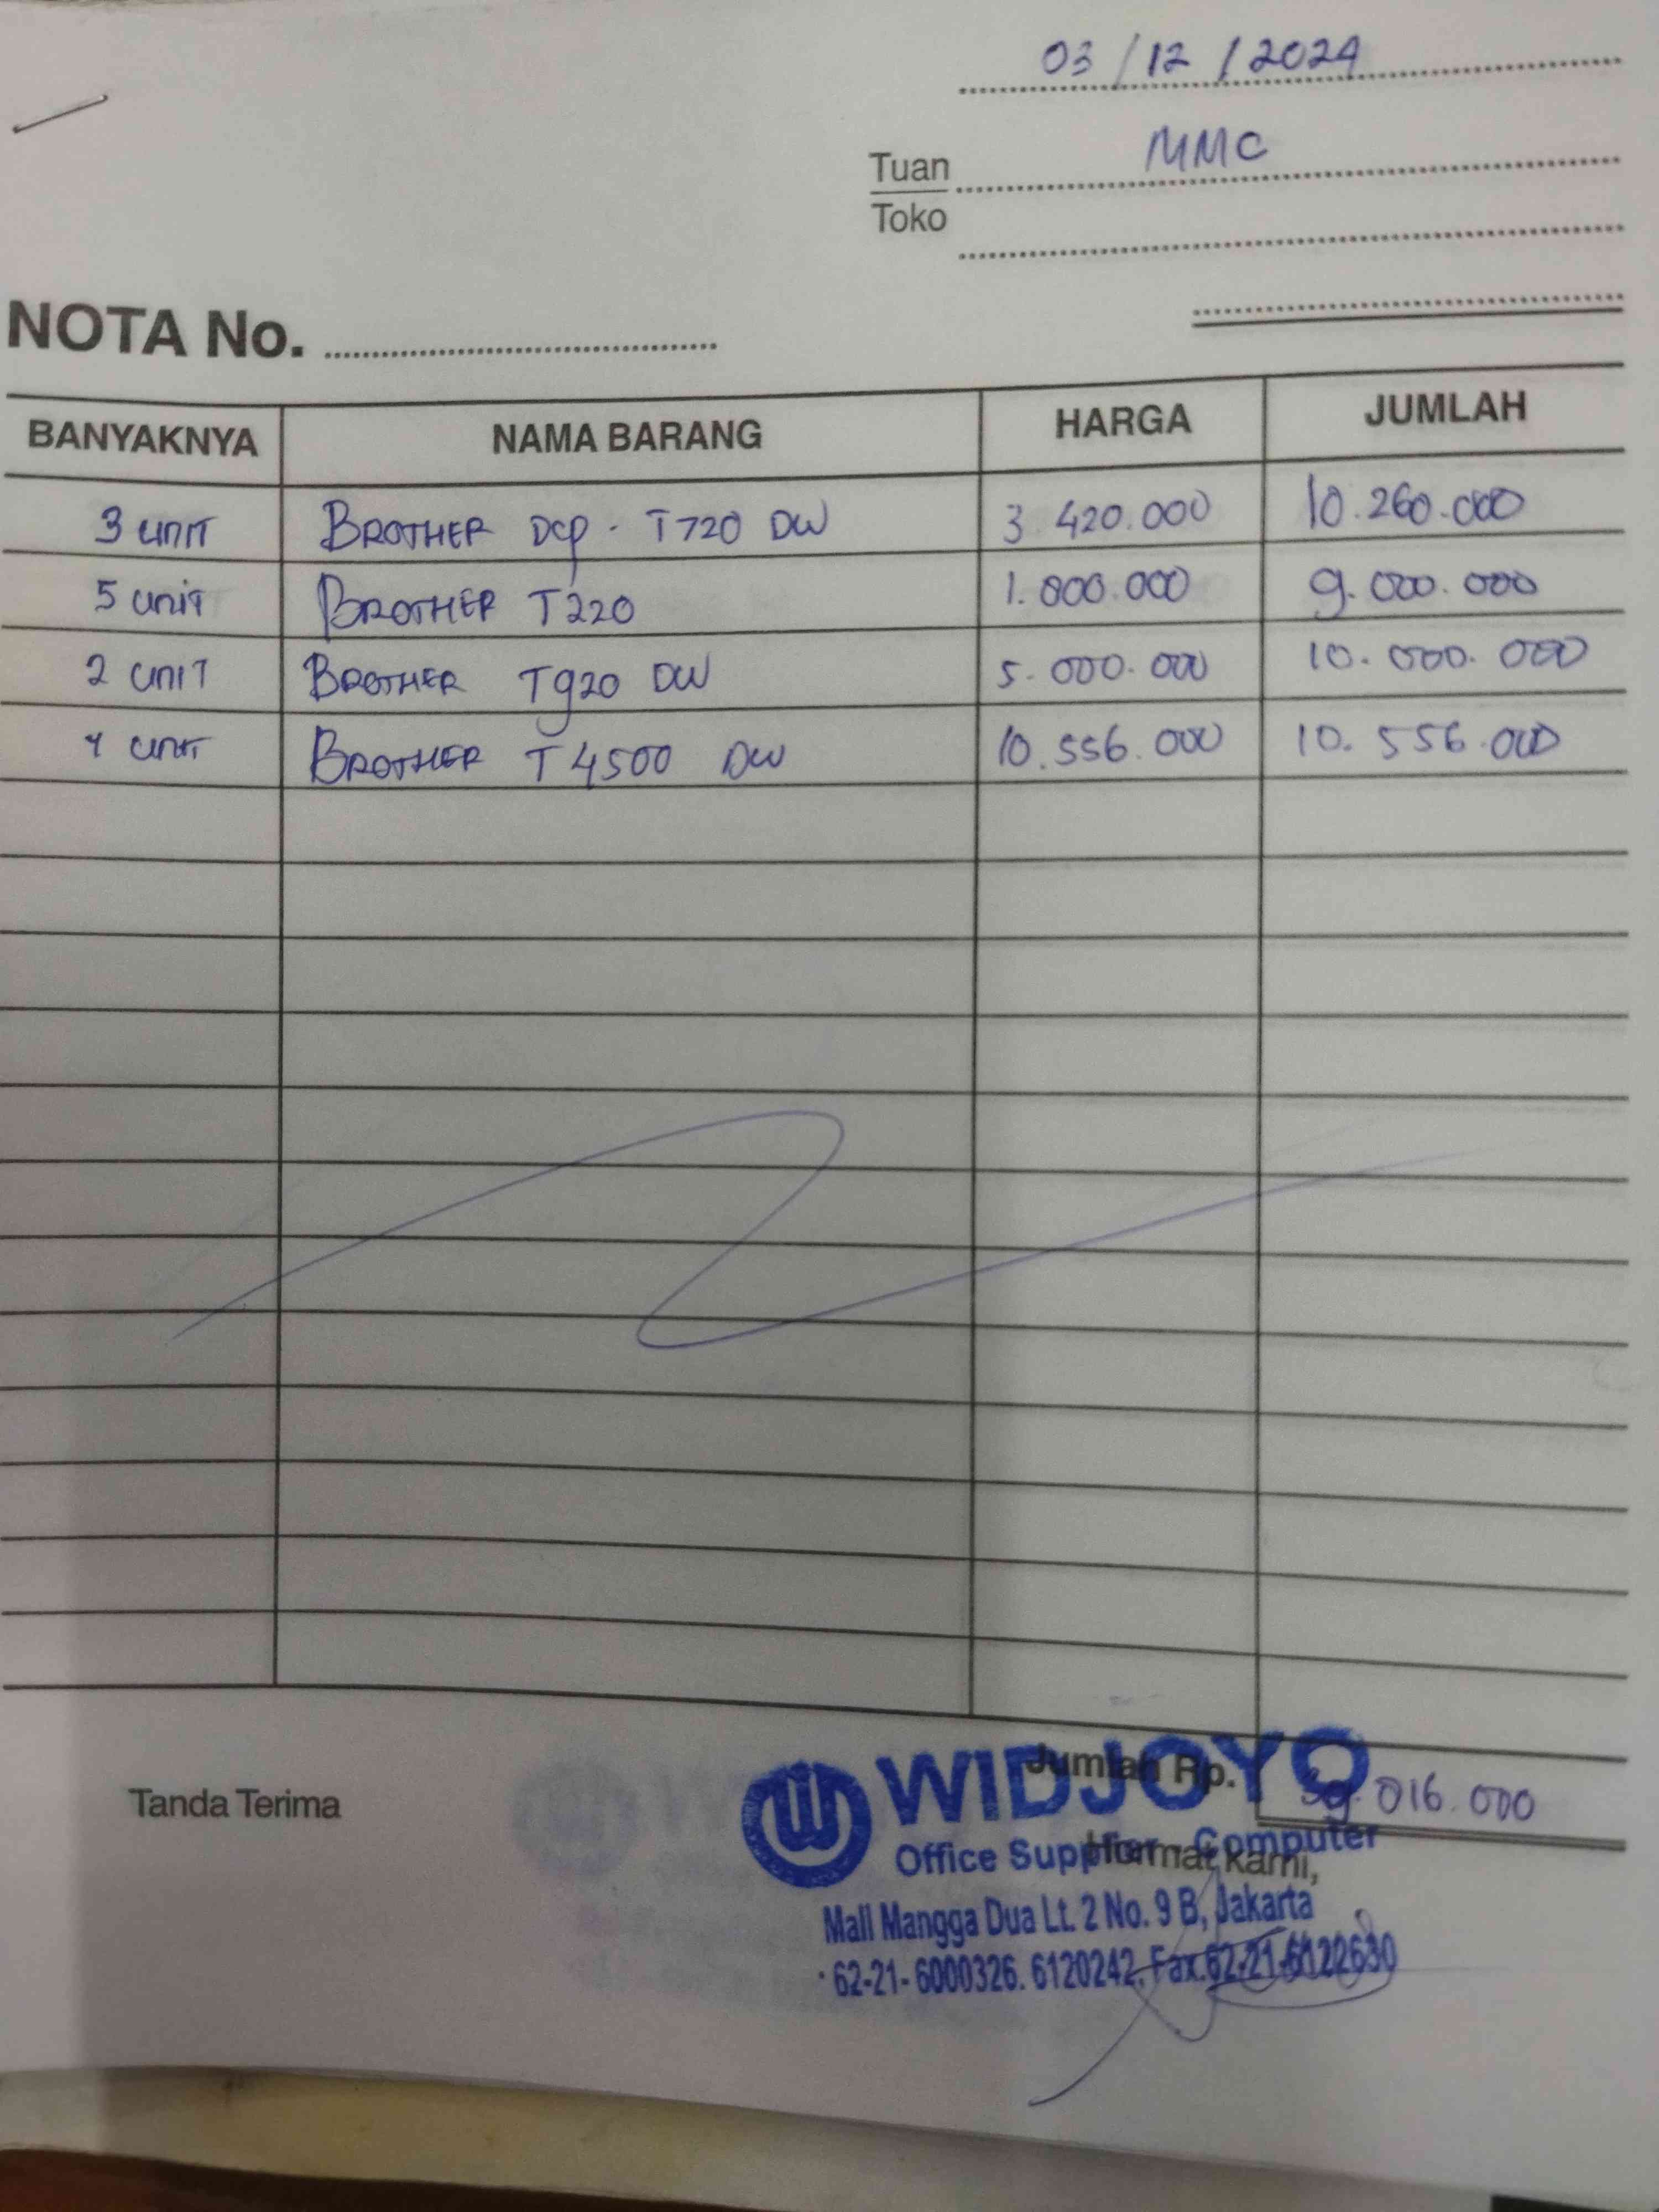 03 / 12 / 2024
Tuan MMC
Toko
NOTA No.
BANYAKNYA NAMA BARANG HARGA JUMLAH
3 UNIT BROTHER DCP - T720 DW 3.420.000 10.260.000
5 unit BROTHER T220 1.800.000 9.000.000
2 UNIT BROTHER T920 DW 5.000.000 10.000.000
1 UNIT BROTHER T4500 DW 10.556.000 10.556.000
Tanda Terima
Jumlah Rp. 016.000
WIDJOYO
Office Supplier - Computer
Hormat kami,
Mall Mangga Dua Lt. 2 No. 9 B, Jakarta
62-21- 6000326. 6120242. Fax.62-21-6122630